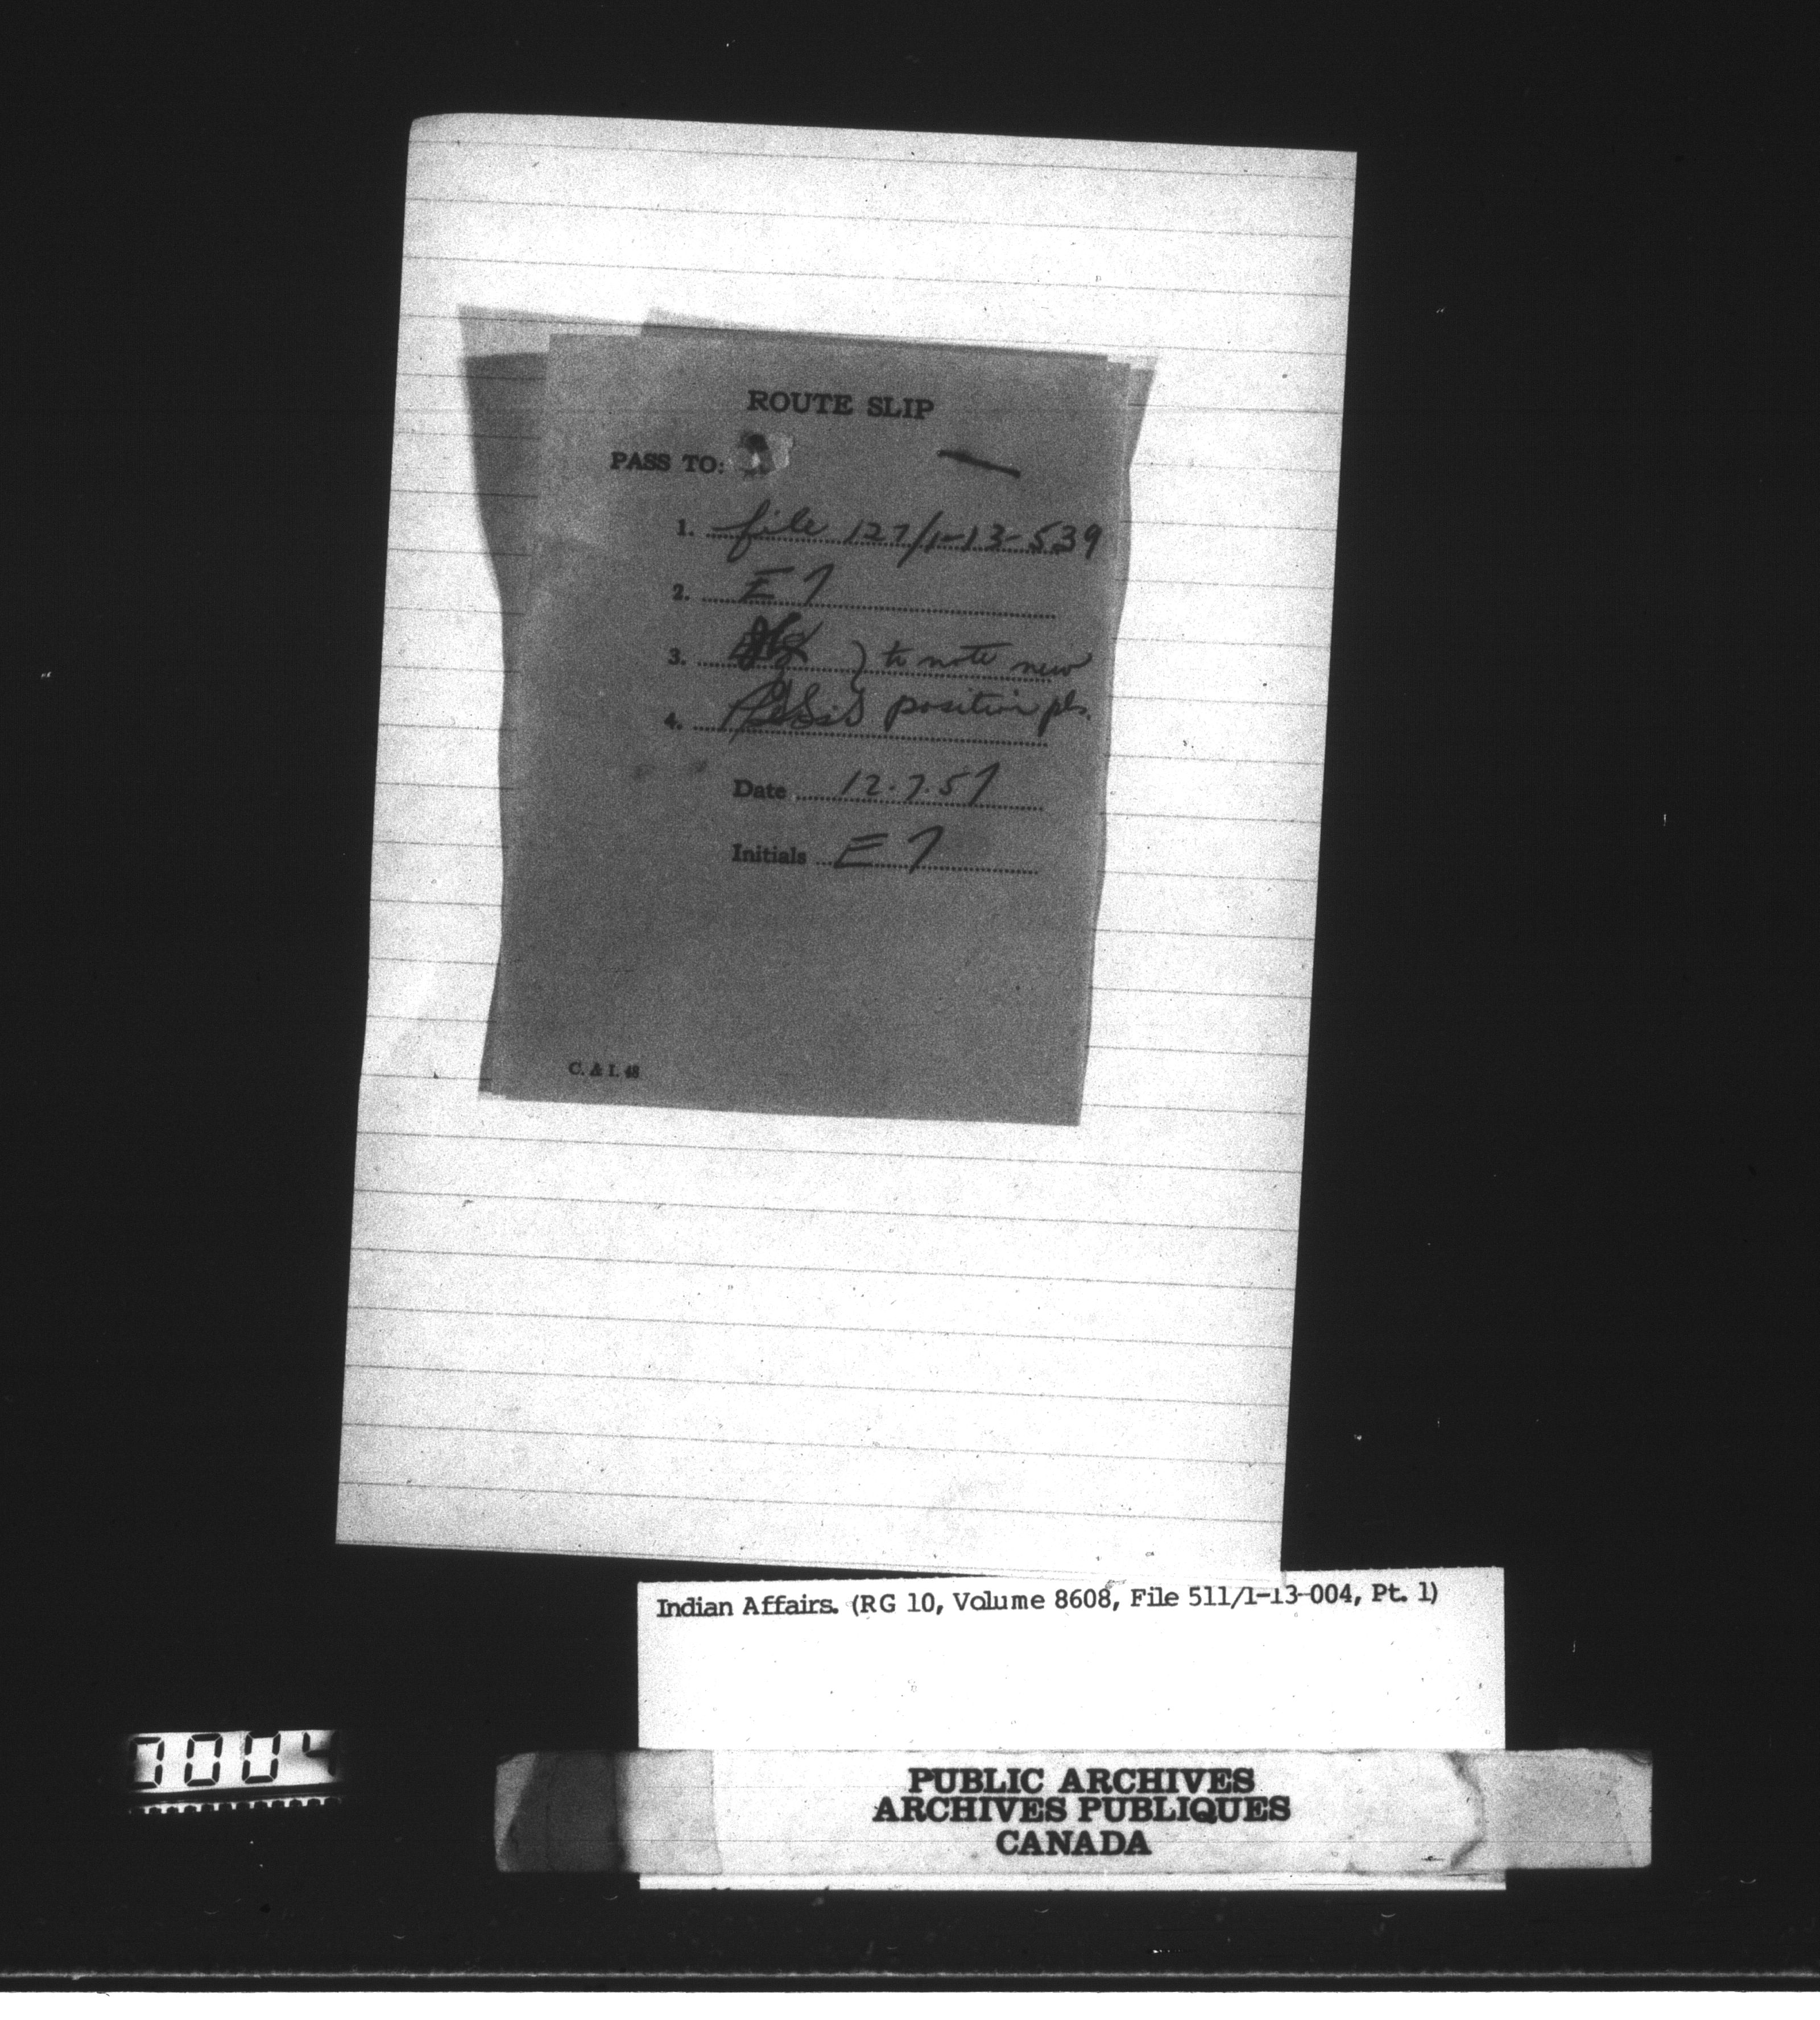 ROUTE SLIP
PASS TO:
1. file 127/1-13-539
2. E 7
3. ) to note new
4. position pls.
Date 12.7.57
Initials E 7
C. & I. 48
Indian Affairs. (RG 10, Volume 8608, File 511/1-13-004, Pt. 1)
PUBLIC ARCHIVES
ARCHIVES PUBLIQUES
CANADA